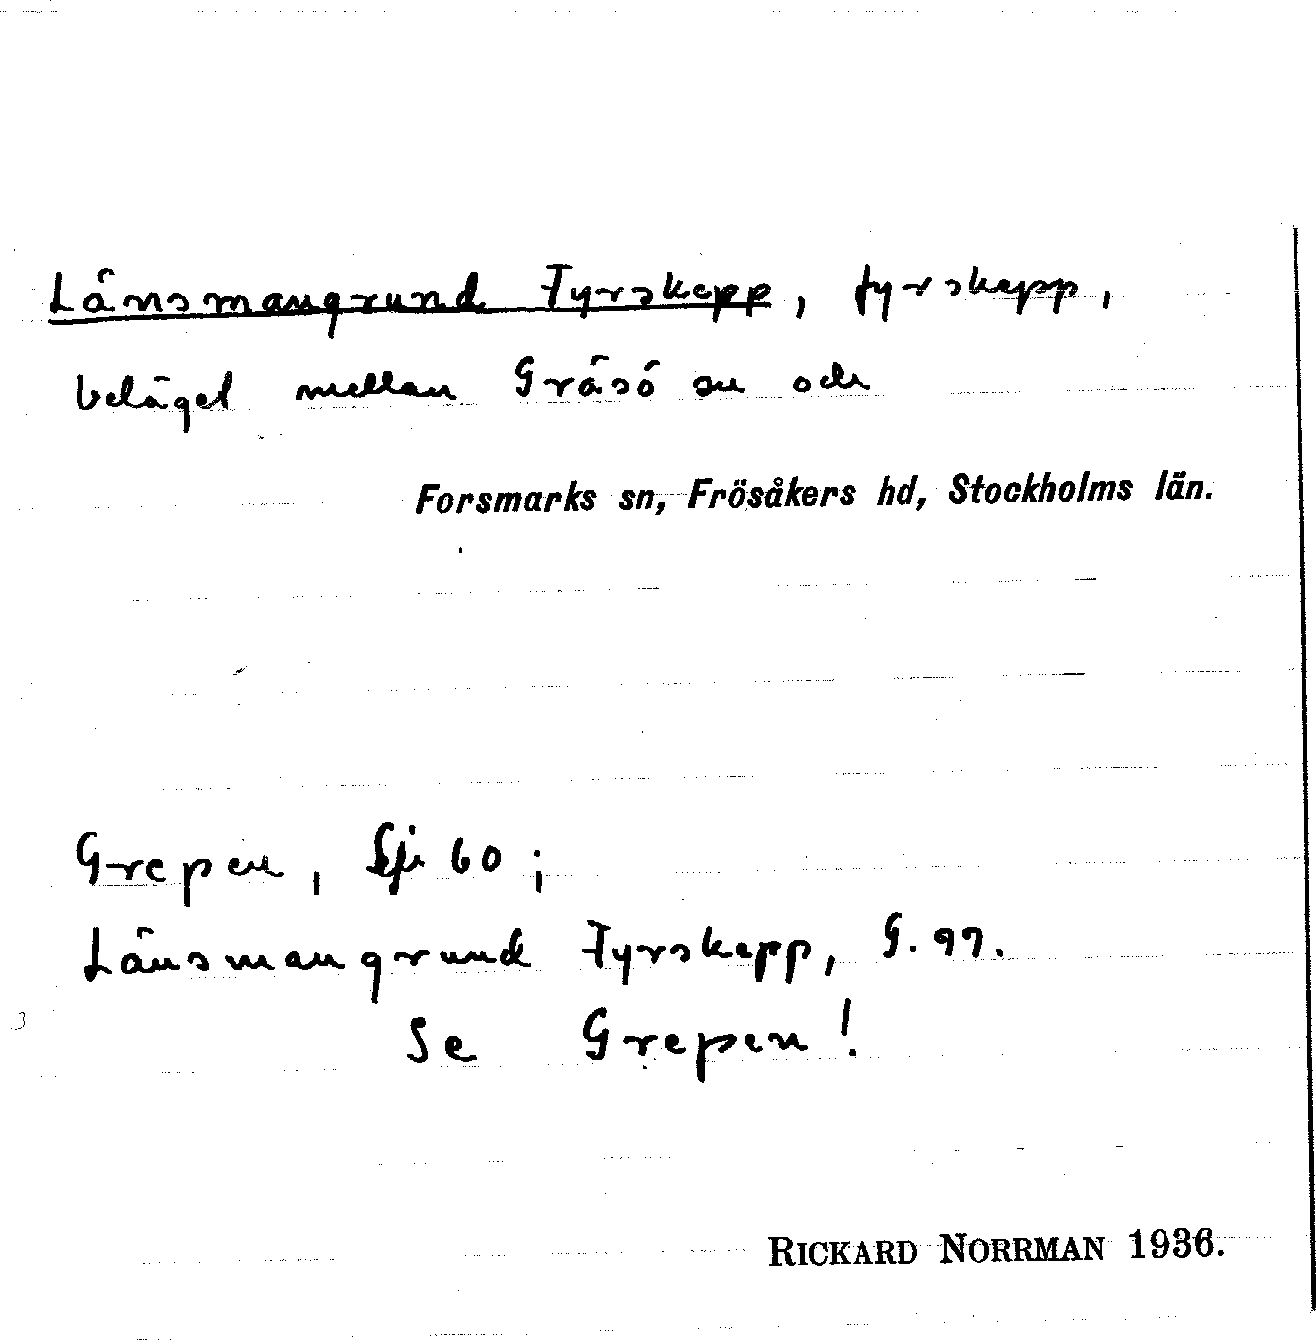 Länsmangrund Fyrskepp, fyrskepp,
beläget mellan Gräsö sn och
Forsmarks sn, Frösåkers hd, Stockholms län.
Grepen, Sjk 60;
Länsmangrund Fyrskepp, G. 97.
Se Grepen!
RICKARD NORRMAN 1936.